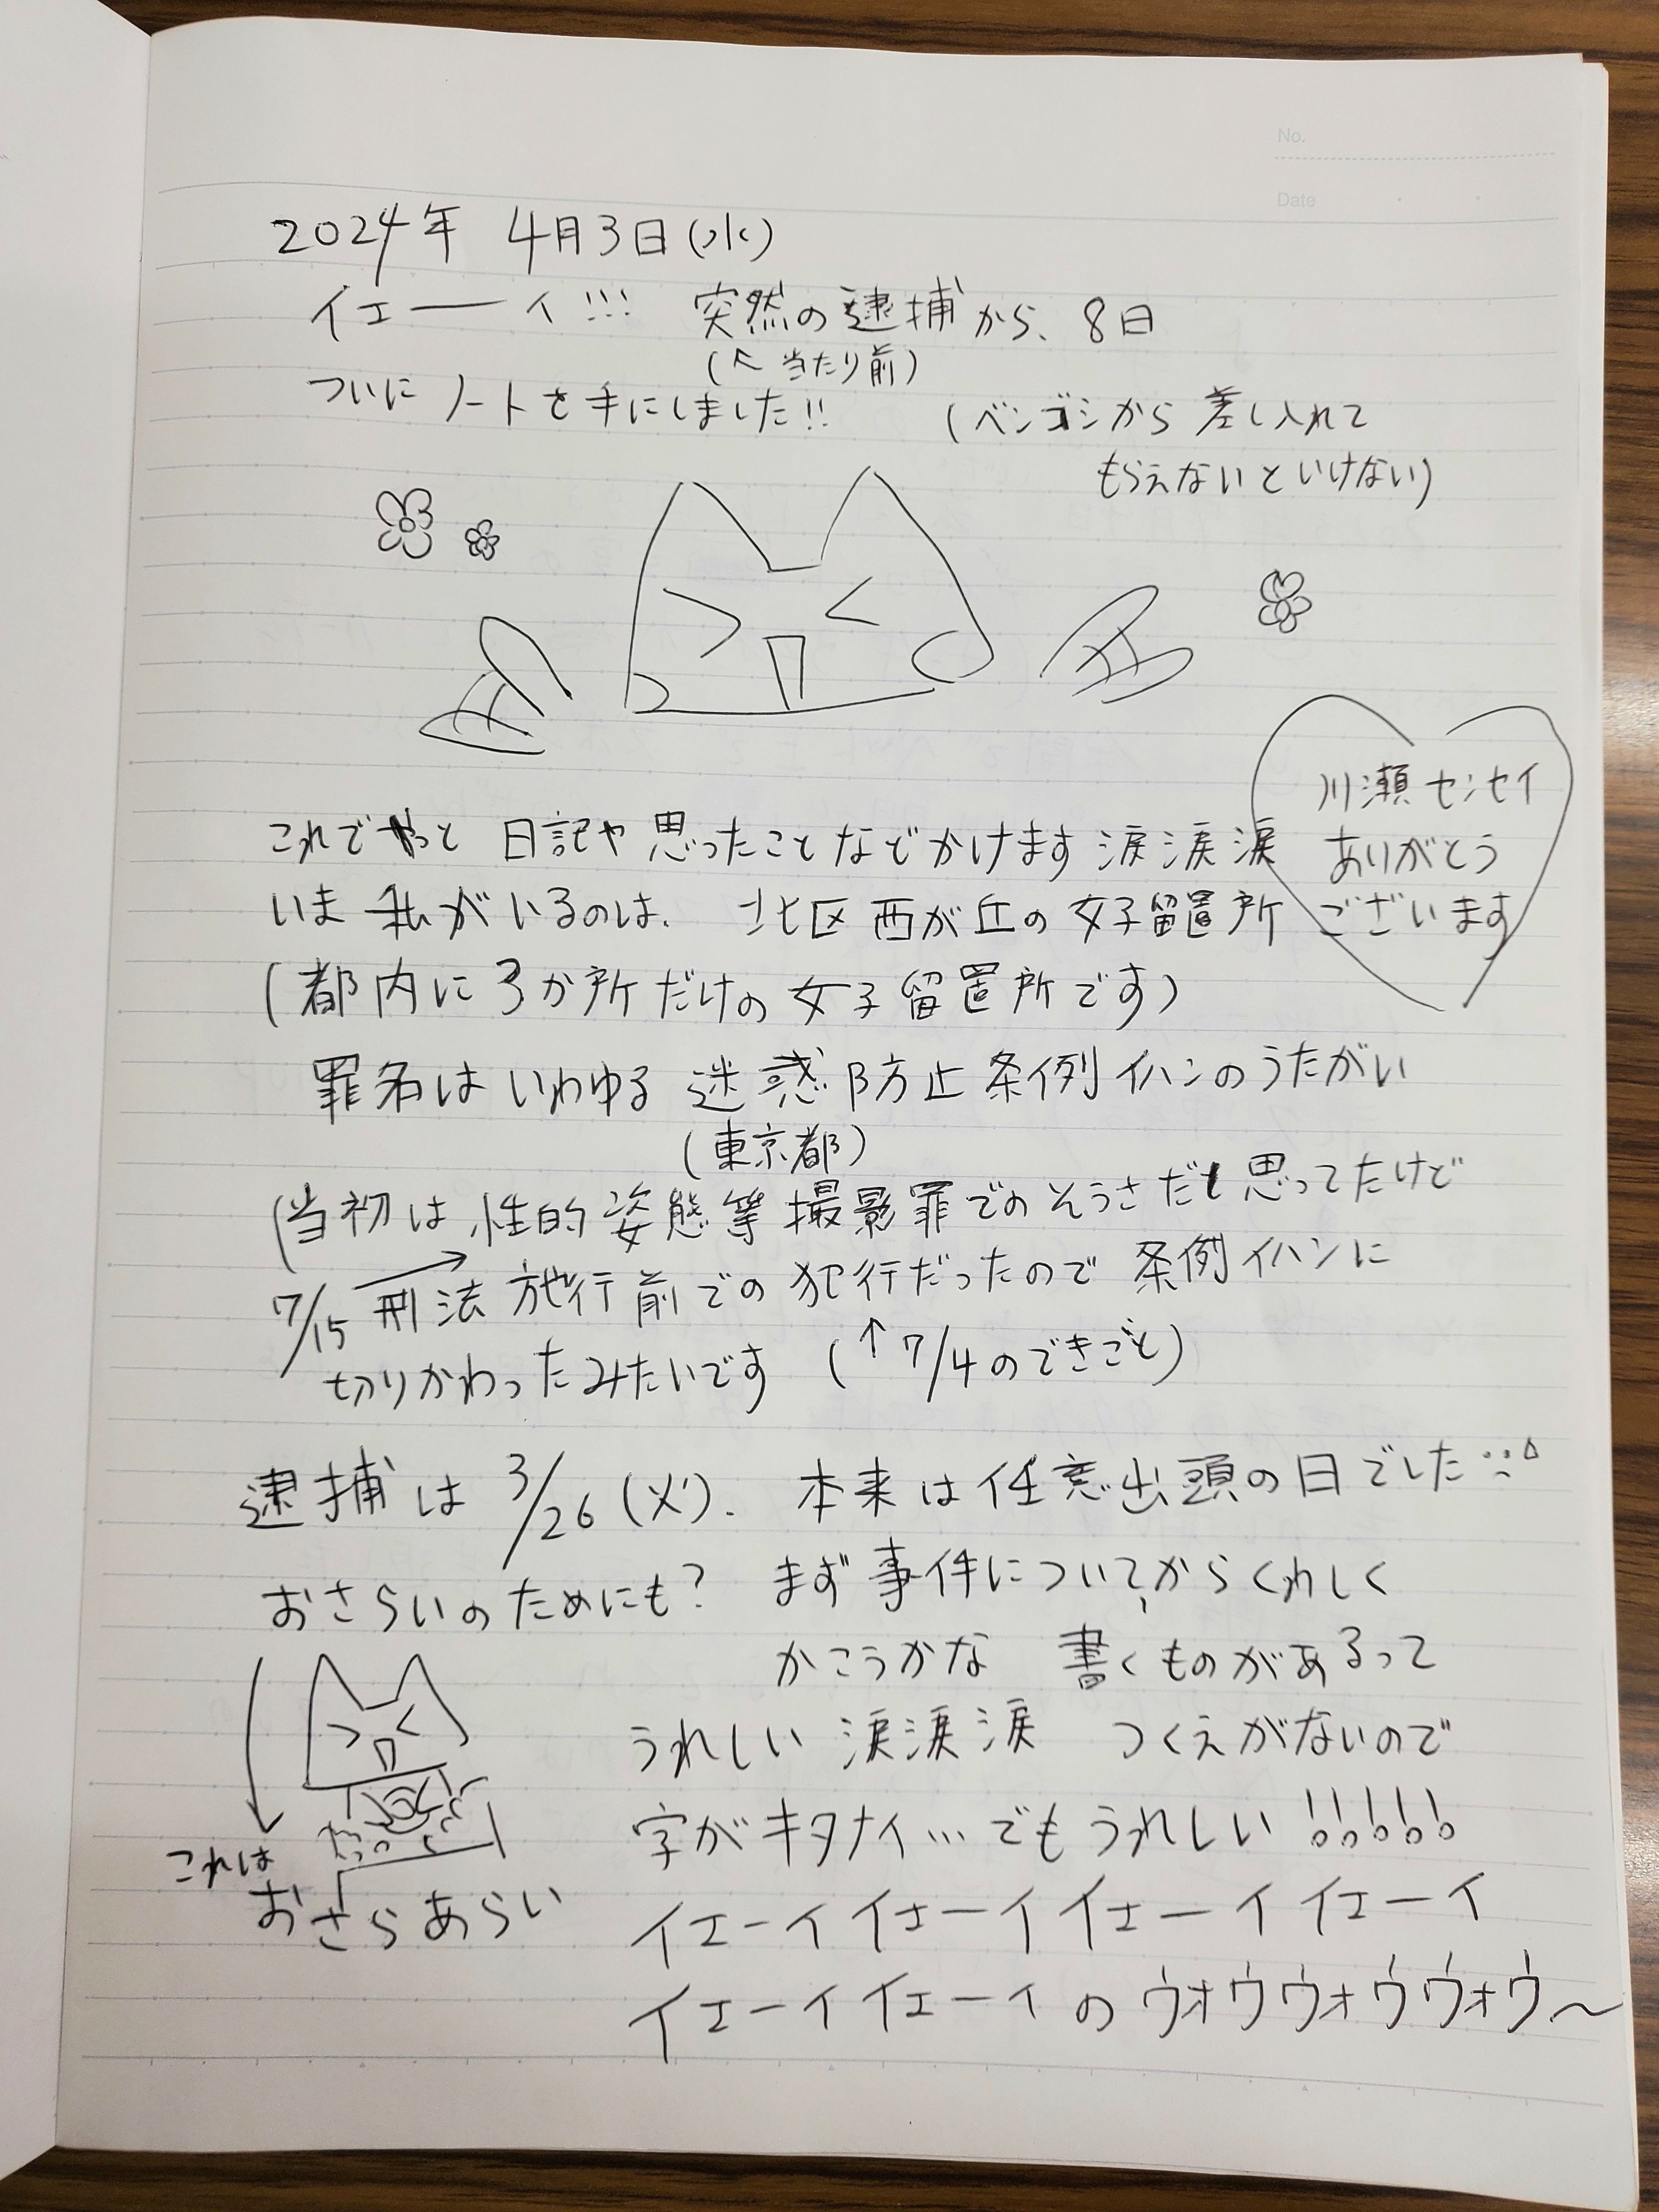 No.
Date
2024年 4月3日(水)
イェーイ!!! 突然の逮捕から、8日
(↖当たり前)
ついにノートを手にしました!! (ベンゴシから差し入れて
もらえないといけない)
川瀬センセイ
ありがとう
ございます
これでやっと 日記や思ったことなどかけます涙涙涙
いま私がいるのは、北区西が丘の女子留置所
(都内に3か所だけの女子留置所です)
罪名はいわゆる迷惑防止条例イハンのうたがい
(東京都)
(当初は性的姿態等撮影罪でのそうさだと思ってたけど
7/15 刑法施行前での犯行だったので条例イハンに
切りかわったみたいです (↑7/4のできごと)
逮捕は3/26(火). 本来は任意出頭の日でした
おさらいのためにも? まず事件についてからくわしく
かこうかな 書くものがあるって
うれしい涙涙涙 つくえがないので
字がキタナイ…でもうれしい!!!!!!
イェーイイェーイイェーイイェーイ
イェーイイェーイのウォウウォウウォウ〜
これは
おさらあらい